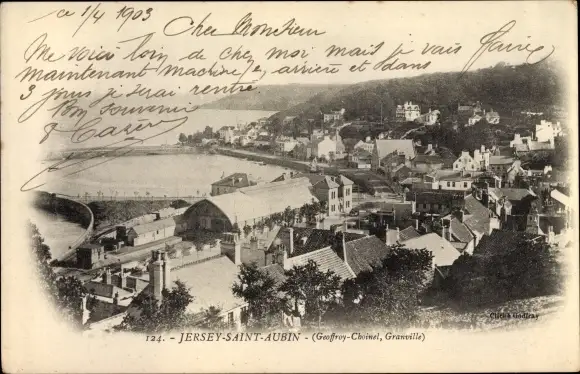 ce 1/4 1903
Cher Monsieur
Me Voici loin de chez moi mais je vais faire
maintenant machine arrière et dans
3 jours je serai rentré
Bon souvenir
124. - JERSEY-SAINT-AUBIN - (Geoffroy-Choinel, Granville)
Cliché Godfray